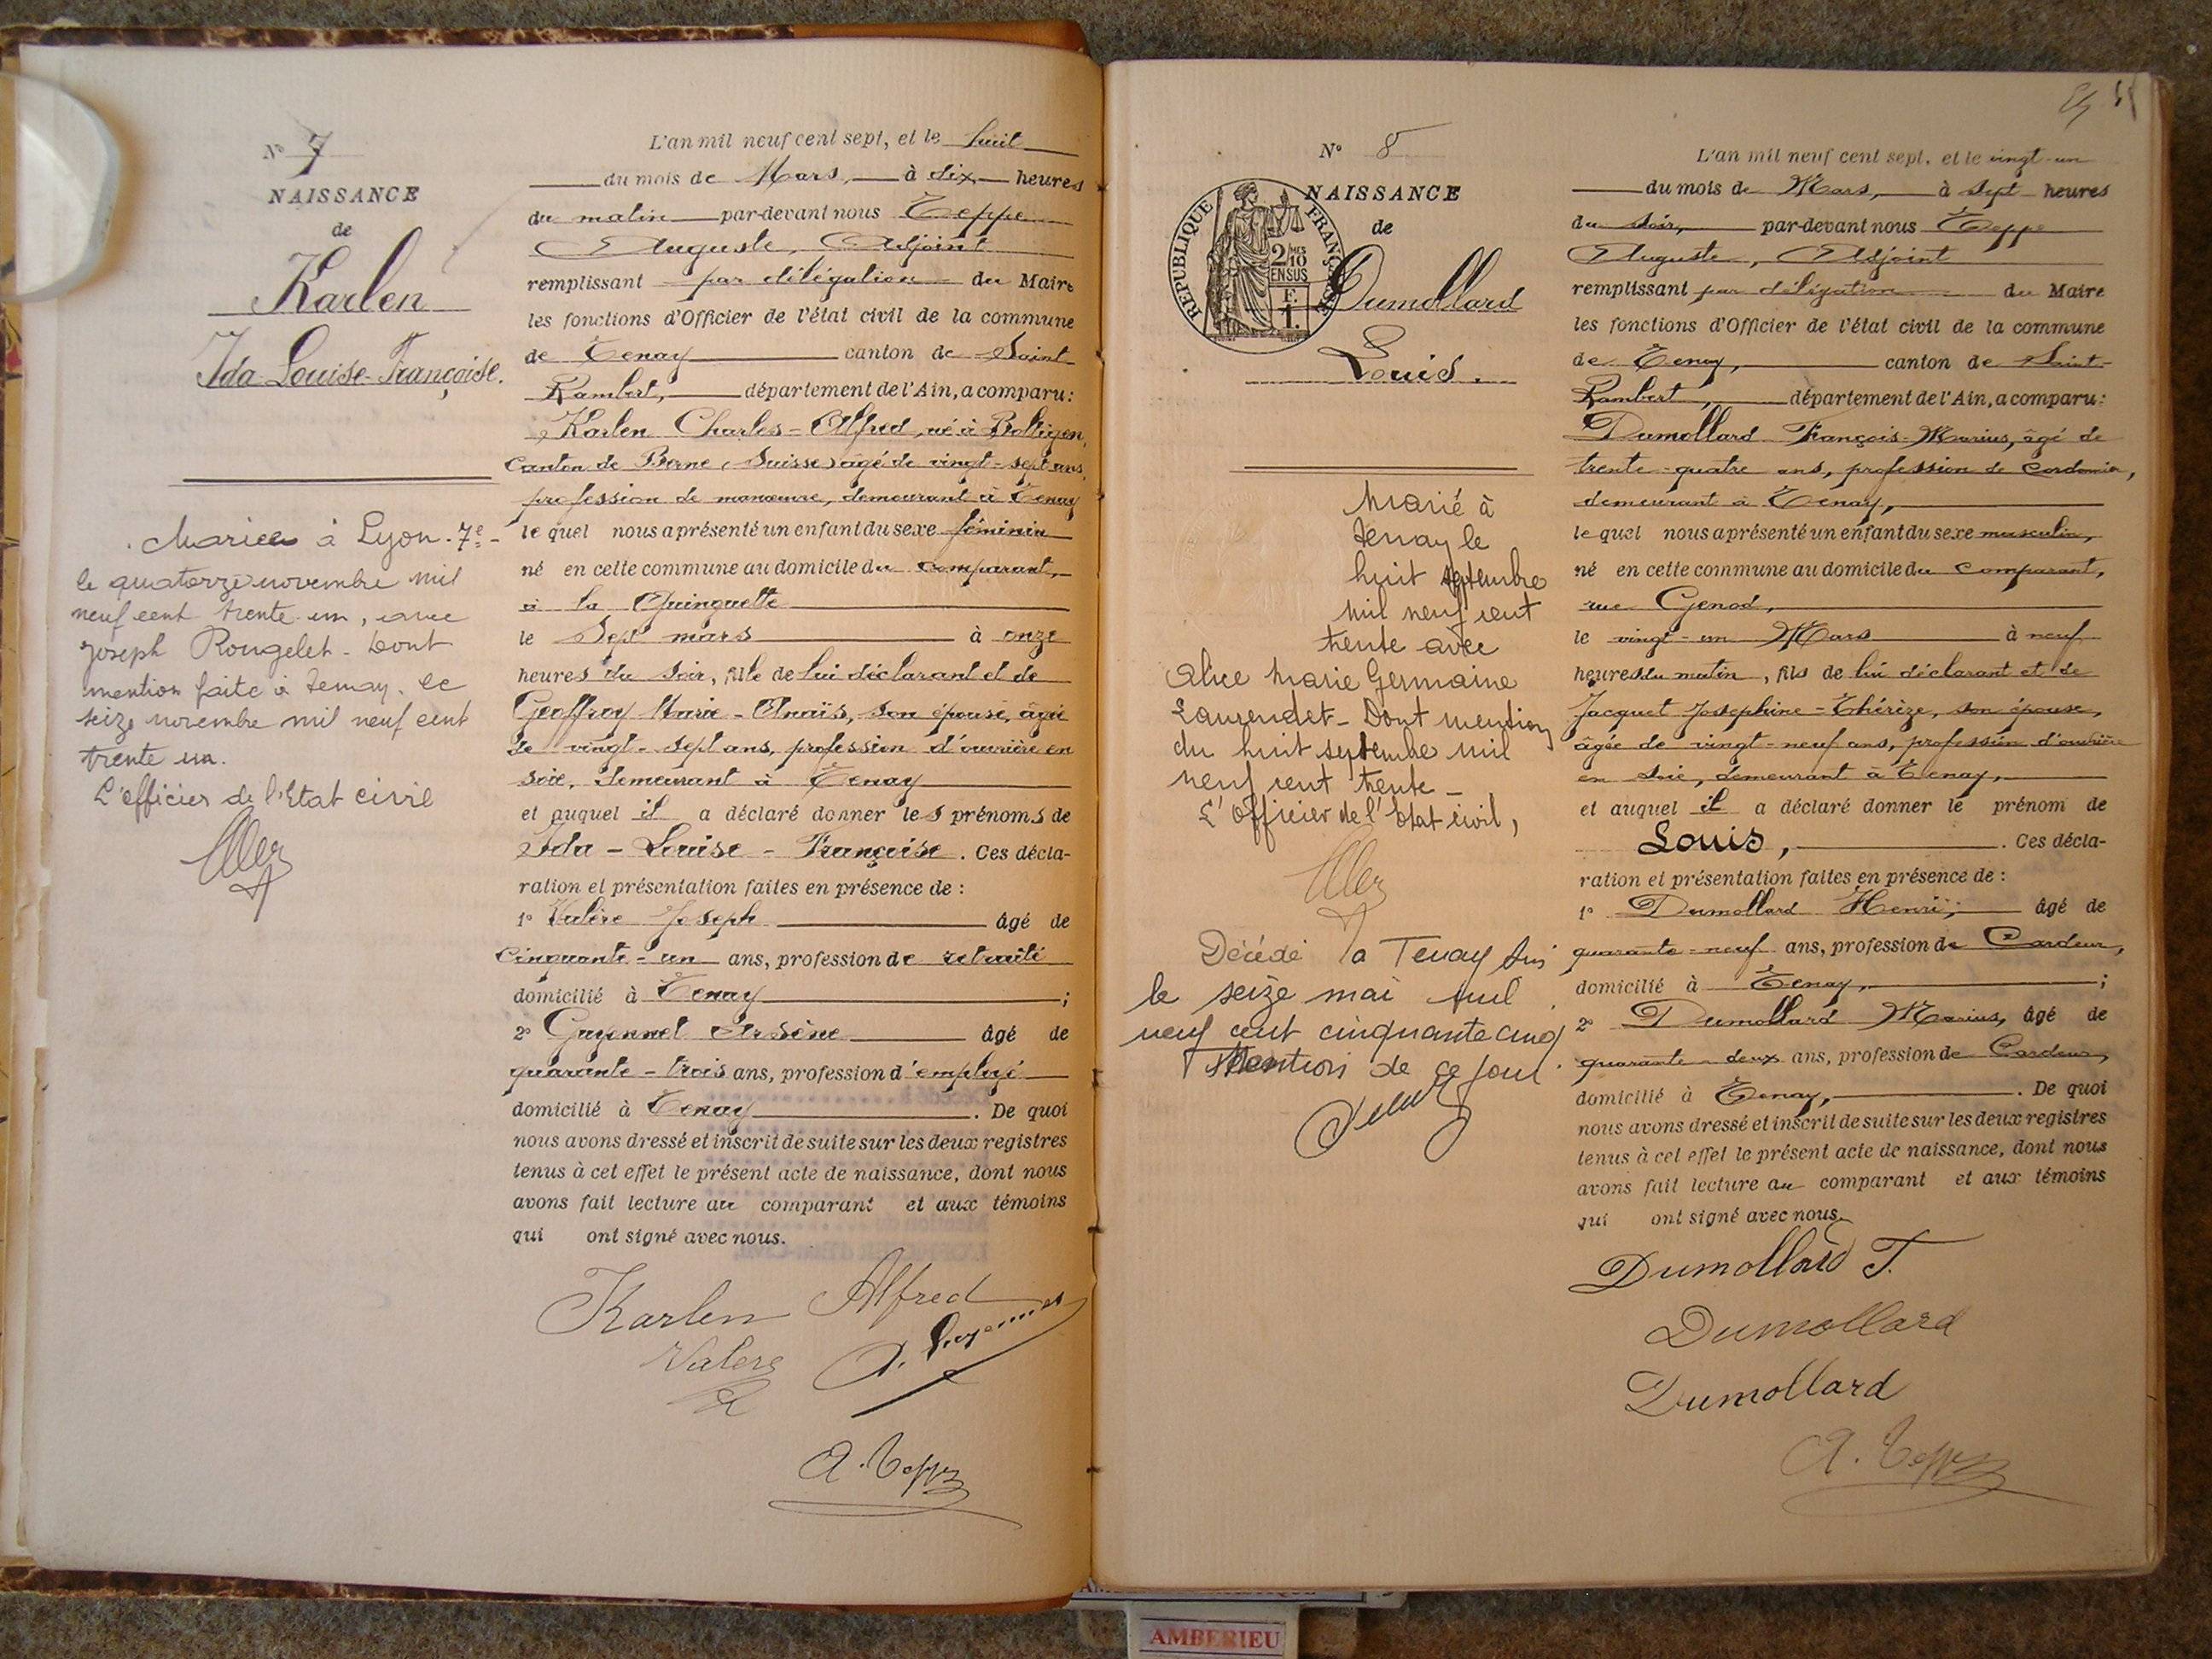 N° 7
NAISSANCE
de
Karlen
Ida Louise-Françoise.
Mariée à Lyon-7e-
le quatorze novembre mil
neuf cent trente un, avec
Joseph Rougelet - Dont
mention faite à Tenay. le
seize novembre mil neuf cent
trente un.
L'officier de l'Etat civil
L'an mil neuf cent sept, et le huit
du mois de Mars, à dix heures
du matin par-devant nous Teppe
Auguste, Adjoint
remplissant par délégation du Maire
les fonctions d'Officier de l'état civil de la commune
de Tenay canton de Saint
Rambert, département de l'Ain, a comparu:
Karlen Charles-Alfred, né à Bolligen,
Canton de Berne (Suisse) âgé de vingt-sept ans,
profession de manœuvre, demeurant à Tenay
le quel nous a présenté un enfant du sexe féminin
né en cette commune au domicile du comparant,
à la Guinguette
le Sept mars à onze
heures du soir, fille de lui déclarant et de
Geoffroy Marie-Anaïs, son épouse, âgée
de vingt-sept ans, profession d'ouvrière en
soie, demeurant à Tenay
et auquel il a déclaré donner les prénoms de
Ida - Louise - Française. Ces décla-
ration et présentation faites en présence de :
1° Valère Joseph âgé de
cinquante-un ans, profession de retraité
domicilié à Tenay ;
2° Guyonnet Arsène âgé de
quarante-trois ans, profession d'employé
domicilié à Tenay . De quoi
nous avons dressé et inscrit de suite sur les deux registres
tenus à cet effet le présent acte de naissance, dont nous
avons fait lecture au comparant et aux témoins
qui ont signé avec nous.
Karlen Alfred
Valere
A. Teppe
N° 8
NAISSANCE
de
Dumollard
Louis.
RÉPUBLIQUE FRANÇAISE
2/10 MES
EN SUS
F.
1.
Marié à
Tenay le
huit septembre
mil neuf cent
trente avec
Alice Marie Germaine
Laurendet - Dont mention
du huit septembre mil
neuf cent trente -
L'Officier de l'Etat civil,
Décédé à Tenay Ain
le seize mai mil
neuf cent cinquante cinq
Mention de ce jour.
L'an mil neuf cent sept, et le vingt-un
du mois de Mars, à sept heures
du soir, par-devant nous Teppe
Auguste, Adjoint
remplissant par délégation du Maire
les fonctions d'Officier de l'état civil de la commune
de Tenay, canton de Saint-
Rambert, département de l'Ain, a comparu:
Dumollard François-Marius, âgé de
trente-quatre ans, profession de cordonnier,
demeurant à Tenay,
le quel nous a présenté un enfant du sexe masculin,
né en cette commune au domicile du comparant,
rue Genod,
le vingt-un Mars à neuf
heures du matin, fils de lui déclarant et de
Jacquet Joséphine-Thérèze, son épouse,
âgée de vingt-neuf ans, profession d'ouvrière
en soie, demeurant à Tenay,
et auquel il a déclaré donner le prénom de
Louis, . Ces décla-
ration et présentation faites en présence de :
1° Dumollard Henri, âgé de
quarante-neuf ans, profession de Cardeur,
domicilié à Tenay, ;
2° Dumollard Marius, âgé de
quarante-deux ans, profession de Cardeur,
domicilié à Tenay, . De quoi
nous avons dressé et inscrit de suite sur les deux registres
tenus à cet effet le présent acte de naissance, dont nous
avons fait lecture au comparant et aux témoins
qui ont signé avec nous.
Dumollard F.
Dumollard
Dumollard
A. Teppe
AMBERIEU